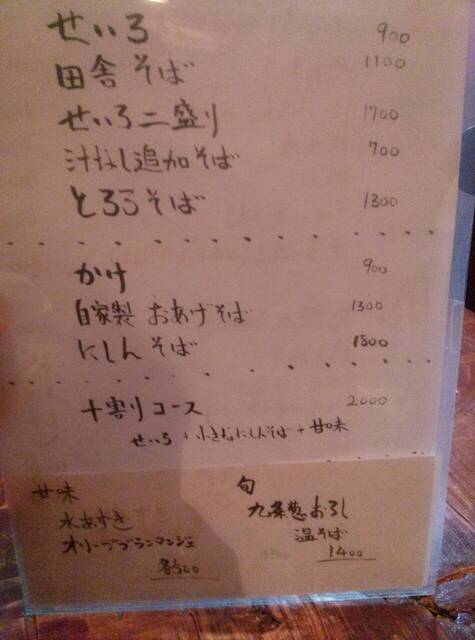 せいろ 900
田舎そば 1100
せいろ二盛り 1700
汁なし追加そば 700
とろろそば 1300
かけ 900
自家製 おあげそば 1300
にしんそば 1800
十割りコース 2000
せいろ + 小さなにしんそば + 甘味
甘味
水あずき
オリーブブランマンジェ
各500
旬
九条葱おろし
温そば
1400